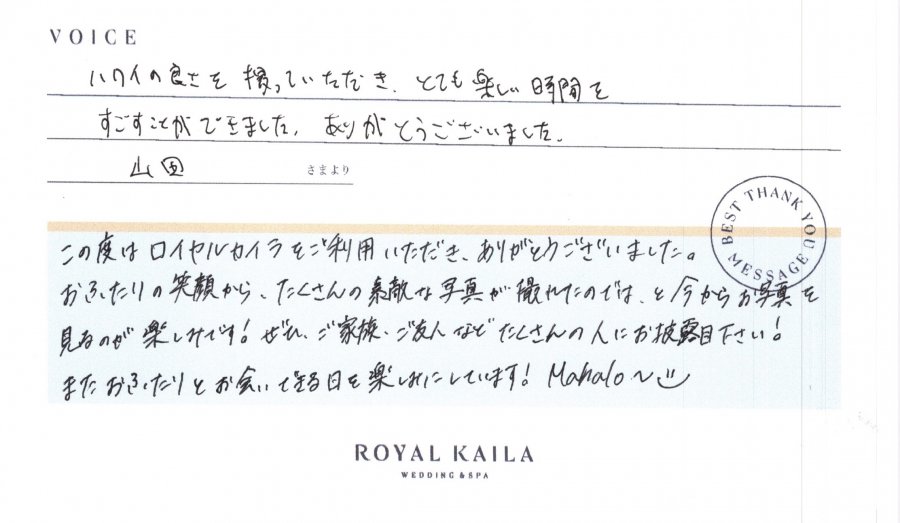 VOICE
ハワイの良さを撮っていただき、とても楽しい時間を
すごすことができました。ありがとうございました。
山田 さまより
BEST THANK YOU MESSAGE
この度はロイヤルカイラをご利用いただき、ありがとうございました。
おふたりの笑顔から、たくさんの素敵な写真が撮れたのでは、と今からお写真を
見るのが楽しみです！ぜひ、ご家族・ご友人などたくさんの人にお披露目下さい！
またおふたりとお会いできる日を楽しみにしています！Mahalo～
ROYAL KAILA
WEDDING & SPA